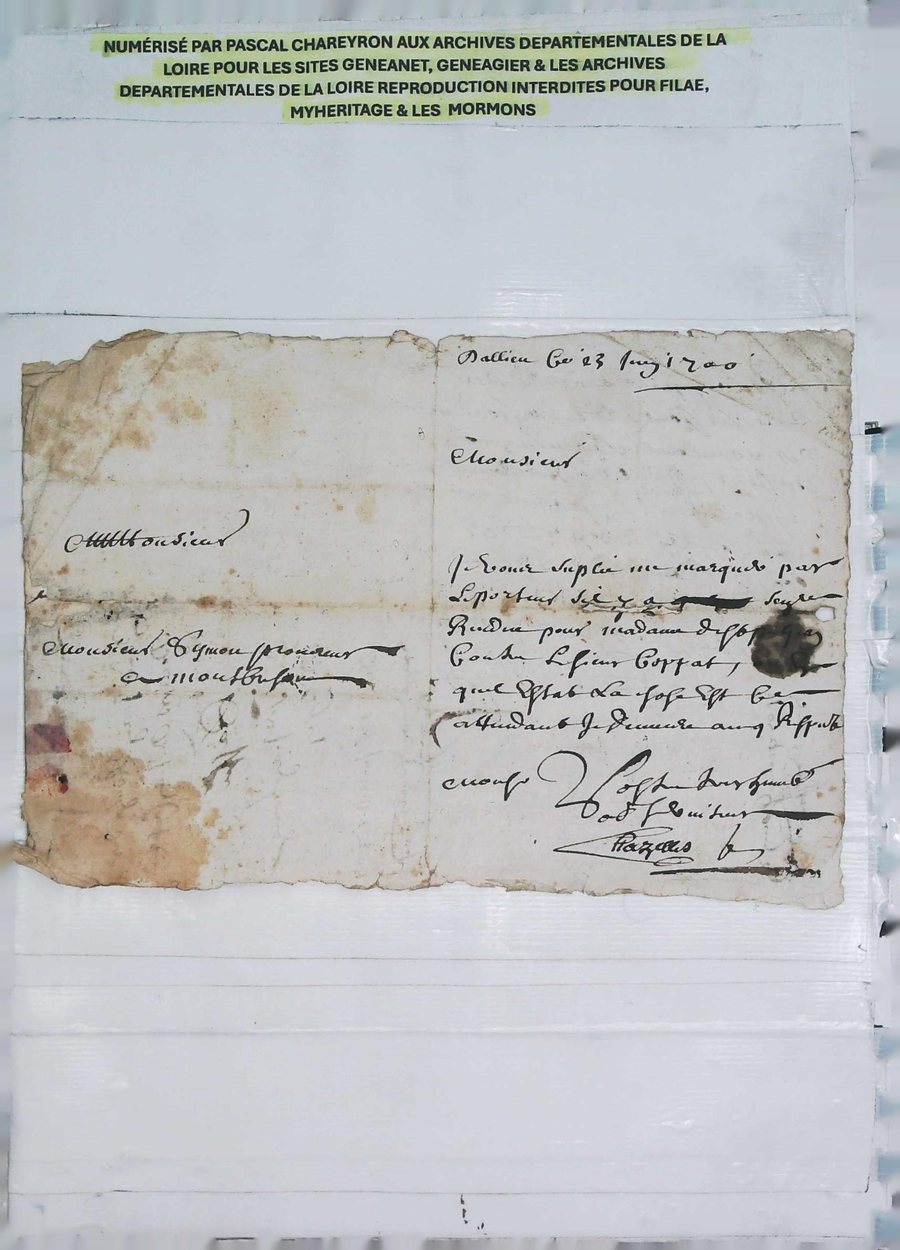 NUMÉRISÉ PAR PASCAL CHAREYRON AUX ARCHIVES DEPARTEMENTALES DE LA
LOIRE POUR LES SITES GENEANET, GENEAGIER & LES ARCHIVES
DEPARTEMENTALES DE LA LOIRE REPRODUCTION INTERDITES POUR FILAE,
MYHERITAGE & LES MORMONS
Monsieur
Monsieur Symon procureur
a montbrison
Dallieu ce 23 1700
Monsieur
Je vous suplie me marquer par
le porteur sil y a
Rendue pour madame
Contre le sieur Coppat,
quel Estat La chose Est Ce
attendant Je demeure avec
Monsr Vostre tres humble
serviteur
Chazelles